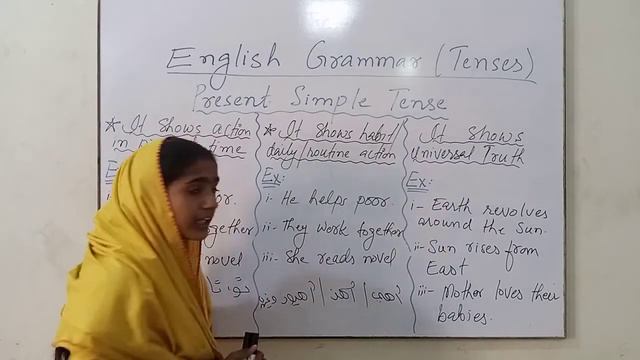 English Grammar (Tenses)
Present Simple Tense
* It shows action
time
* It shows habit/
daily/routine action
Ex:
i- He helps poor.
ii- They work together
iii- She reads novel
It shows
Universal Truth
Ex:
i- Earth revolves
around the Sun.
ii- Sun rises from
East
iii- Mother loves their
babies.